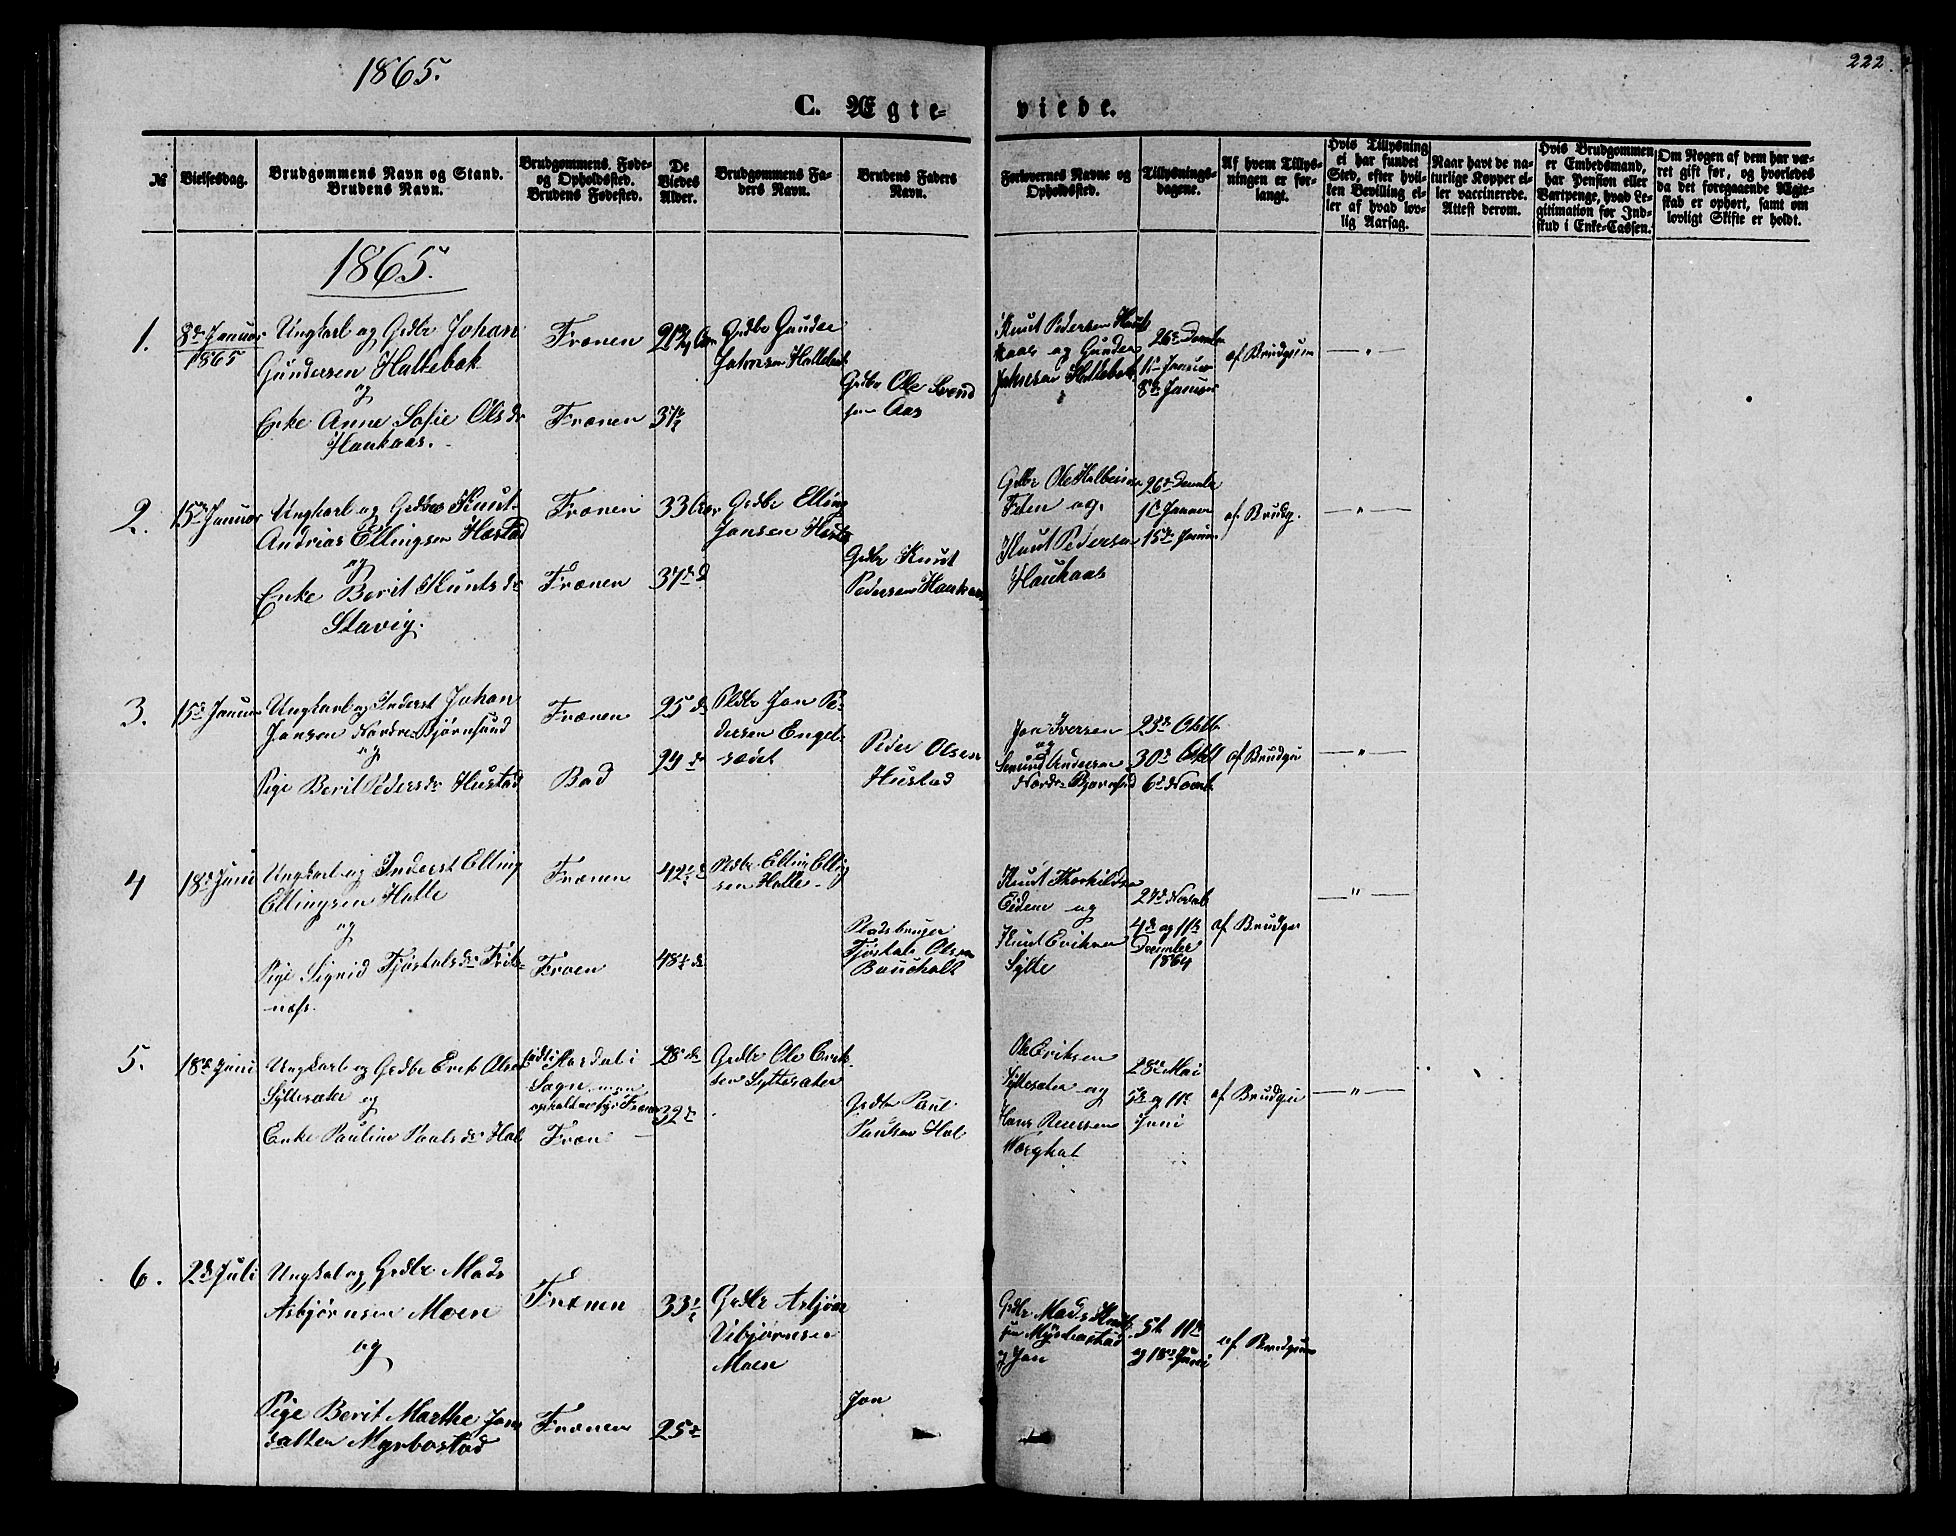 1865.
222
C. Ægte-
viede.
№
Vielsesdag.
Brudgommens Navn og Stand.
Brudens Navn.
Brudgommens Føde-
og Opholdssted.
Brudens Fødested.
De
Viedes
Alder.
Brudgommens Fa-
ders Navn.
Brudens Faders
Navn.
Forlovernes Navne og
Opholdssted.
Tillysnings-
dagene.
Af hvem Tillys-
ningen er for-
langt.
Hvis Tillysning
ei har fundet
Sted, efter hvil-
ken Bevilling el-
ler af hvad lov-
lig Aarsag.
Naar havt de na-
turlige Kopper el-
ler vaccinerede.
Attest derom.
Hvis Brudgommen
er Embedsmand,
har Pension eller
Vartpenge, hvad Le-
gitimation for Ind-
skud i Enke-Cassen.
Om Nogen af dem har væ-
ret gift før, og hvorledes
da det foregaaende Ægte-
skab er ophørt, samt om
lovligt Skifte er holdt.
1865.
1.
8de Januar
1865
Ungkarl og Grdbr Johan
Gundersen Hallebok
og
Enke Anne Sofie Olsdr
Haukaas.
Frænen
Frænen
37
Grdbr Gunder
Johnsen Hallebok
Grdbr Ole Svend
sen Aas
Knut Pedersen Hauk
kaas og Gunder
Johnsen Hallebok
26de Decemb
1ste Januar
8de Januar
af Brudgom
— " —
2.
15de Januar
Ungkarl og Grdbr Knut
Andrias Ellingsen Hostad
og
Enke Berit Knutsdr
Stavig.
Frænen
Frænen
33 Aar
37 d
Grdbr Elling
Jansen Hosta
Grdbr Knut
Pedersen Haukaas
Grdbr Ole Halbeinsen
Eiden og
Knut Pedersen
Haukaas
26de Decemb
1ste Januar
15de Januar
af Brudg.
— " —
3.
15de Januar
Ungkarl og Inderst Johan
Jansen Nordre Bjørnsund
og
Pige Berit Pedersdr Hustad
Frænen
Bod
25 d
24 d
Pldbr Jon Pe-
dersen Engel-
sædet
Peder Olsen
Hustad
Jon Iversen
og
Andersen
Nordre Bjørnsund
23de Oktb
30de Oktb
6te Novemb
af Brudgu
— " —
4
18de Juni
Ungkarl og Inderst Elling
Ellingsen Halle
og
Pige Sigrid Tjøstolsdr Frile-
næss.
Frænen
Fræen
42 d
48 d
Pldbr Elling Elling
sen Halle
Pladsbruger
Tjøstol Olsen
Bouchalt
Knut Thorkildsen
Eidem og
Knut Eriksen
Sylte
27de Novemb
4de og 11te
December
1864
af Brudgu
— " —
5.
18de Juni
Ungkarl og Grdbr Erik Olsen
Sylteseter og
Enke Pauline Paulsdr Hol
født i
Sogn men
opholder sig i Frænen
Fræn
28 d
32
Grdbr Ole Erik-
sen Sylteseter
Grdbr Paul
Paulsen Hol
Ole Eriksen
Sylteseter og
Hans
28de Mai
5te og 11te
Juni
af Brudgu
— " —
6.
2de Juli
Ungkal og Grdbr Mads
Asbjørnsen Moen
og
Pige Berit Marthe Jons
datter Myrbostad
Frænen
Frænen
33
25
Grdbr Asbjørn
Vebjørnsen
Moen
Jon
Grdbr Mads Knut
sen Myrbostad
og Jon
5te 11te
og 18de Juni
af Brudgum